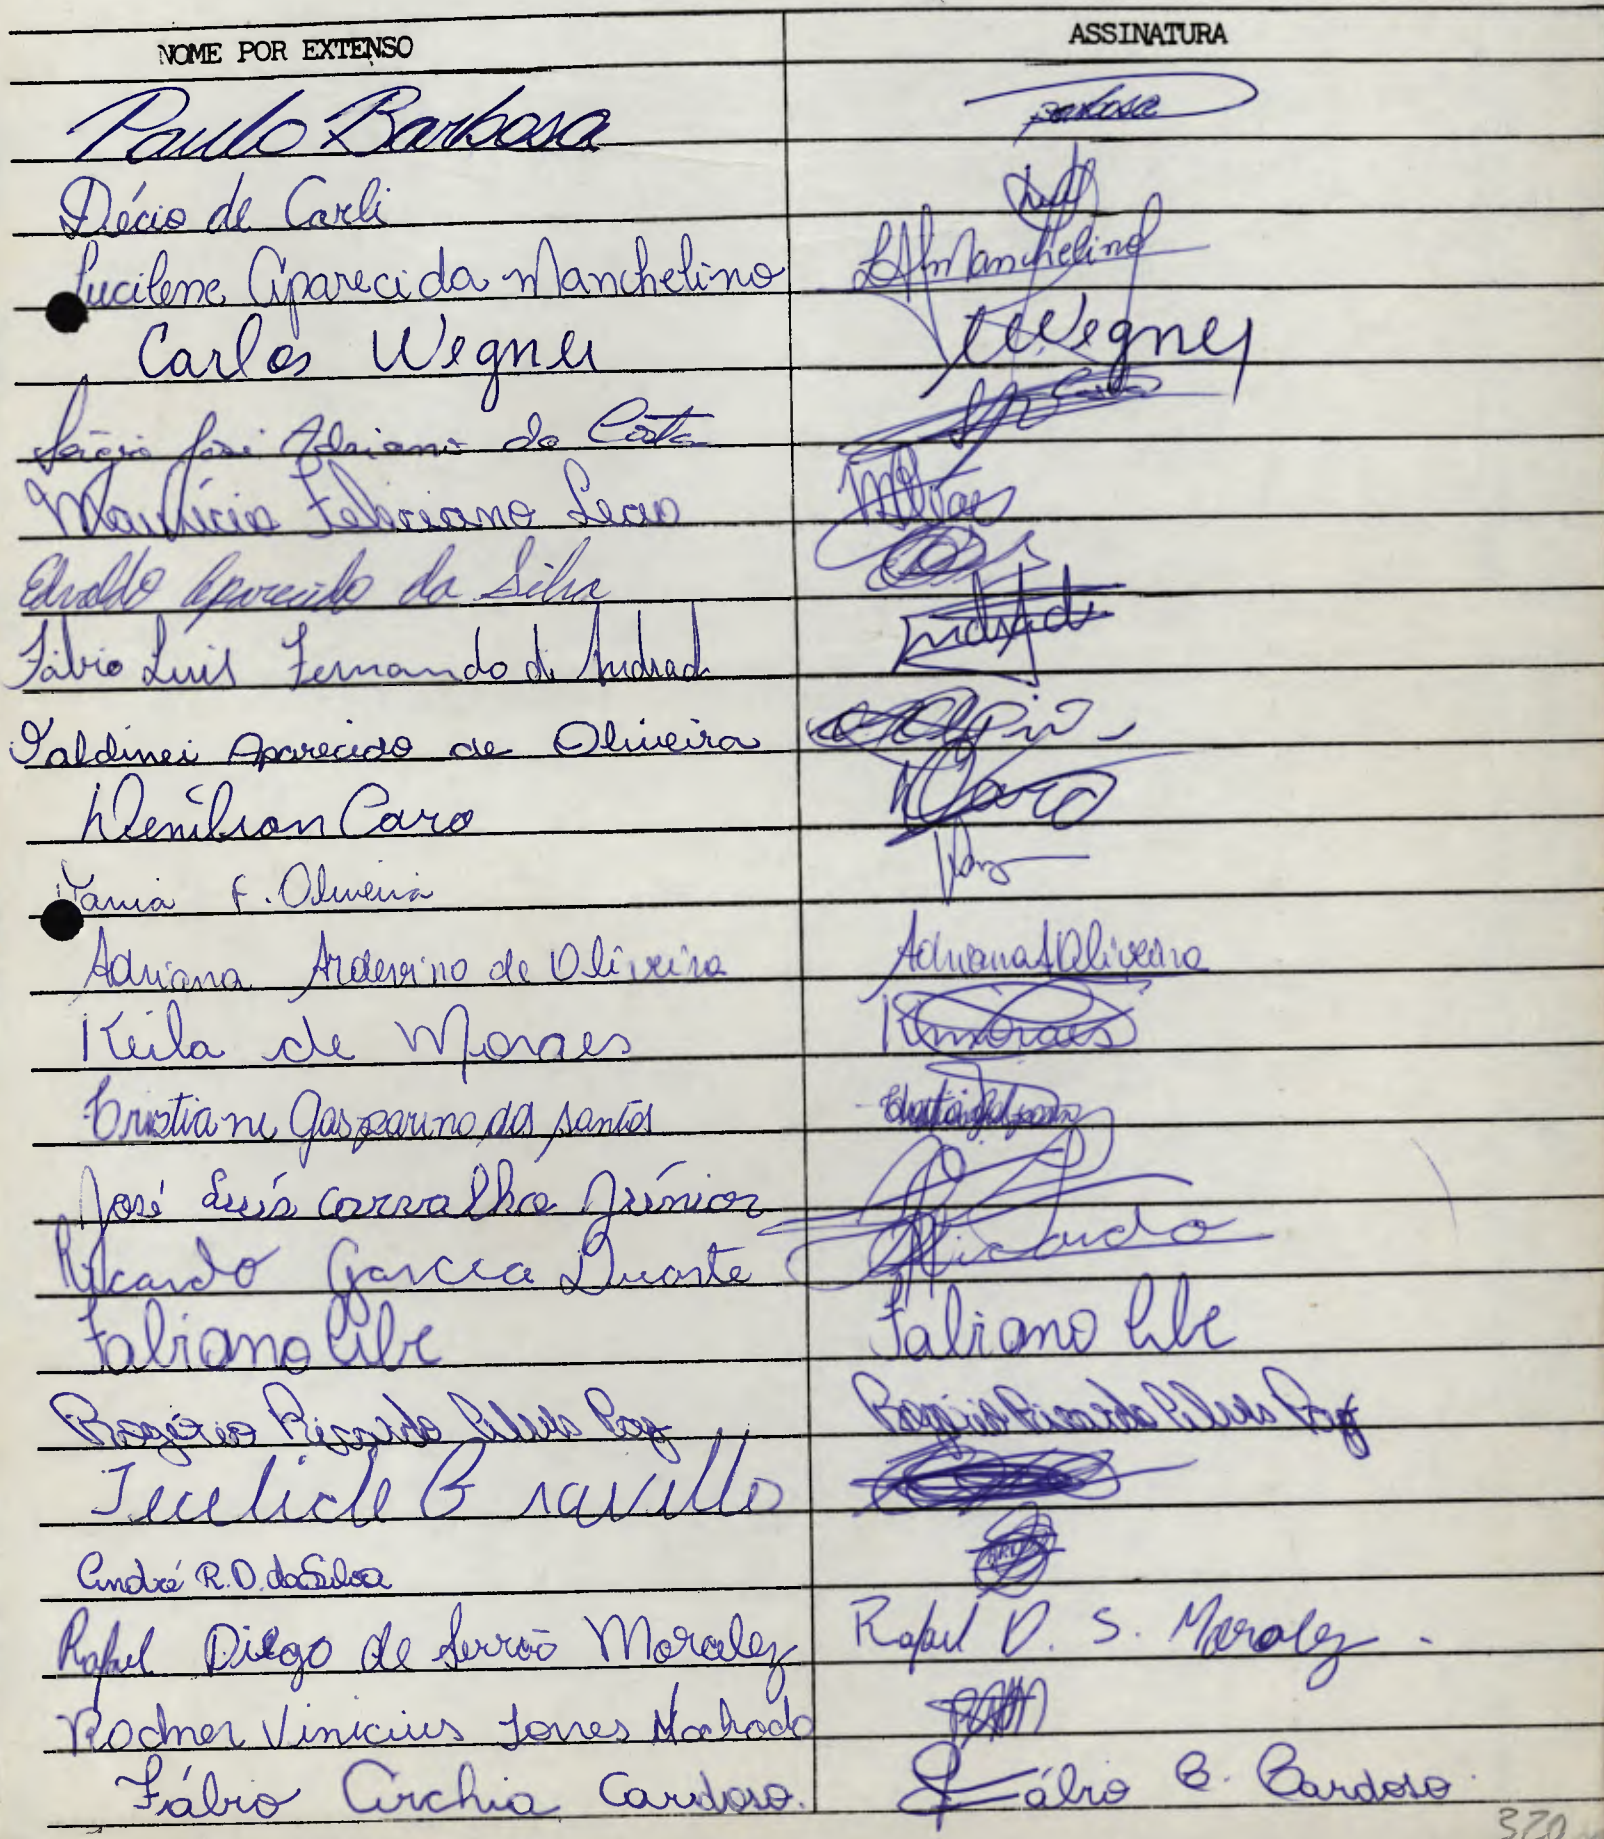 NOME POR EXTENSO ASSINATURA
Paulo Barbosa Barbosa
Décio de Carli
Lucilene Aparecida Manchelino LAManchelino
Carlos Wegner Wegner
Sérgio José Adriano da Costa
Maurício Febriano Leao
Edvaldo Aparecido da Silva
Fábio Luis Fernando de Andrade Andrade
Valdinei Aparecido de Oliveira
Denilson Caro Caro
Vania F. Oliveira
Adriana Ardevino de Oliveira Adriana A Oliveira
Keila de Moraes KMoraes
Cristiane Gasparino dos Santos
José Luís Carvalho Júnior
Ricardo Garcia Duarte Ricardo
Fabiano Fabiano
Rogério Ricardo Rogério Ricardo
André R.D. da Silva
Rafael Diego de Serrão Moralez Rafael D. S. Moralez
Rodner Vinicius Torres Machado
Fábio Archia Cardoso. Fábio C. Cardoso
320